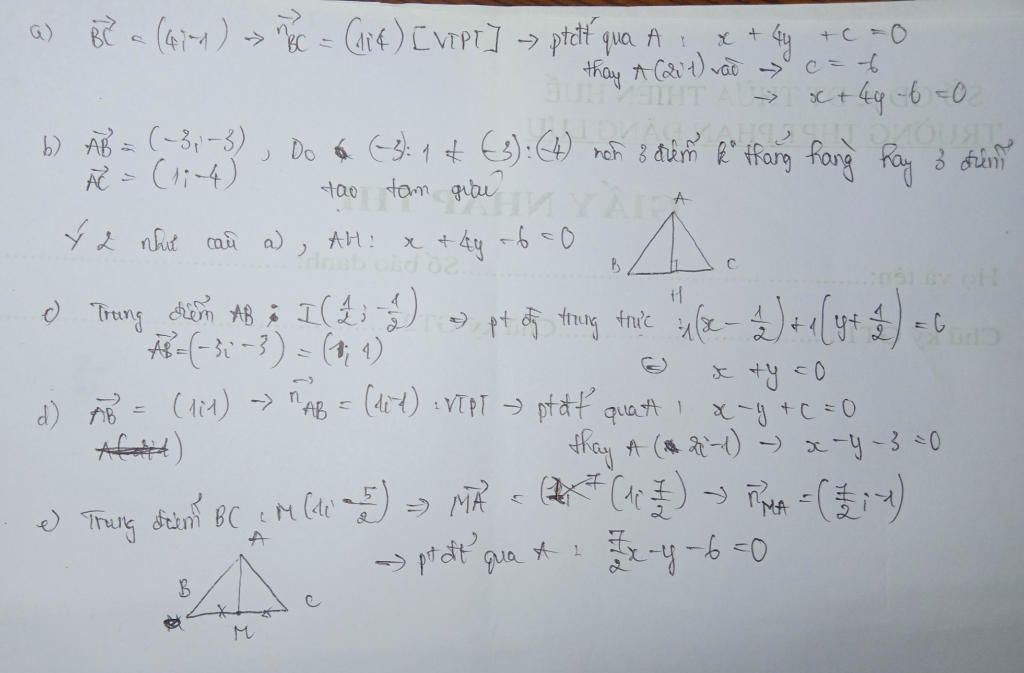 a) BC = (4;-1) → n BC = (1;4) [VTPT] → ptđt qua A : x + 4y + c = 0
thay A(2;1) vào → c = -6
→ x + 4y - 6 = 0
b) AB = (-3;-3) , Do (-3):1 ≠ (-3):(-4) nên 3 điểm k° thẳng hàng hay 3 điểm
AC = (1;-4) tạo tam giác
Ý 2 như câu a), AH: x + 4y - 6 = 0
A
B C
H
c) Trung điểm AB : I(1/2; -1/2) → pt đg trung trực : 1(x - 1/2) + 1(y + 1/2) = 0
AB = (-3;-3) = (1; 1)
⇔ x + y = 0
d) AB = (1;1) → n AB = (1;-1) : VTPT → ptđt qua A : x - y + c = 0
thay A (2;-1) → x - y - 3 = 0
e) Trung điểm BC : M(1; -5/2) ⇒ MA = (1; 7/2) → n MA = (7/2; -1)
→ ptđt qua A : 7/2x - y - 6 = 0
A
B C
M